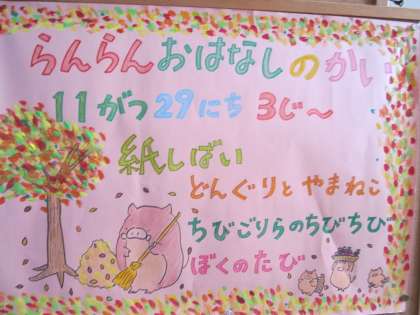 らんらんおはなしのかい
11がつ29にち 3じ～
紙しばい
どんぐりとやまねこ
ちびごりらのちびちび
ぼくのたび